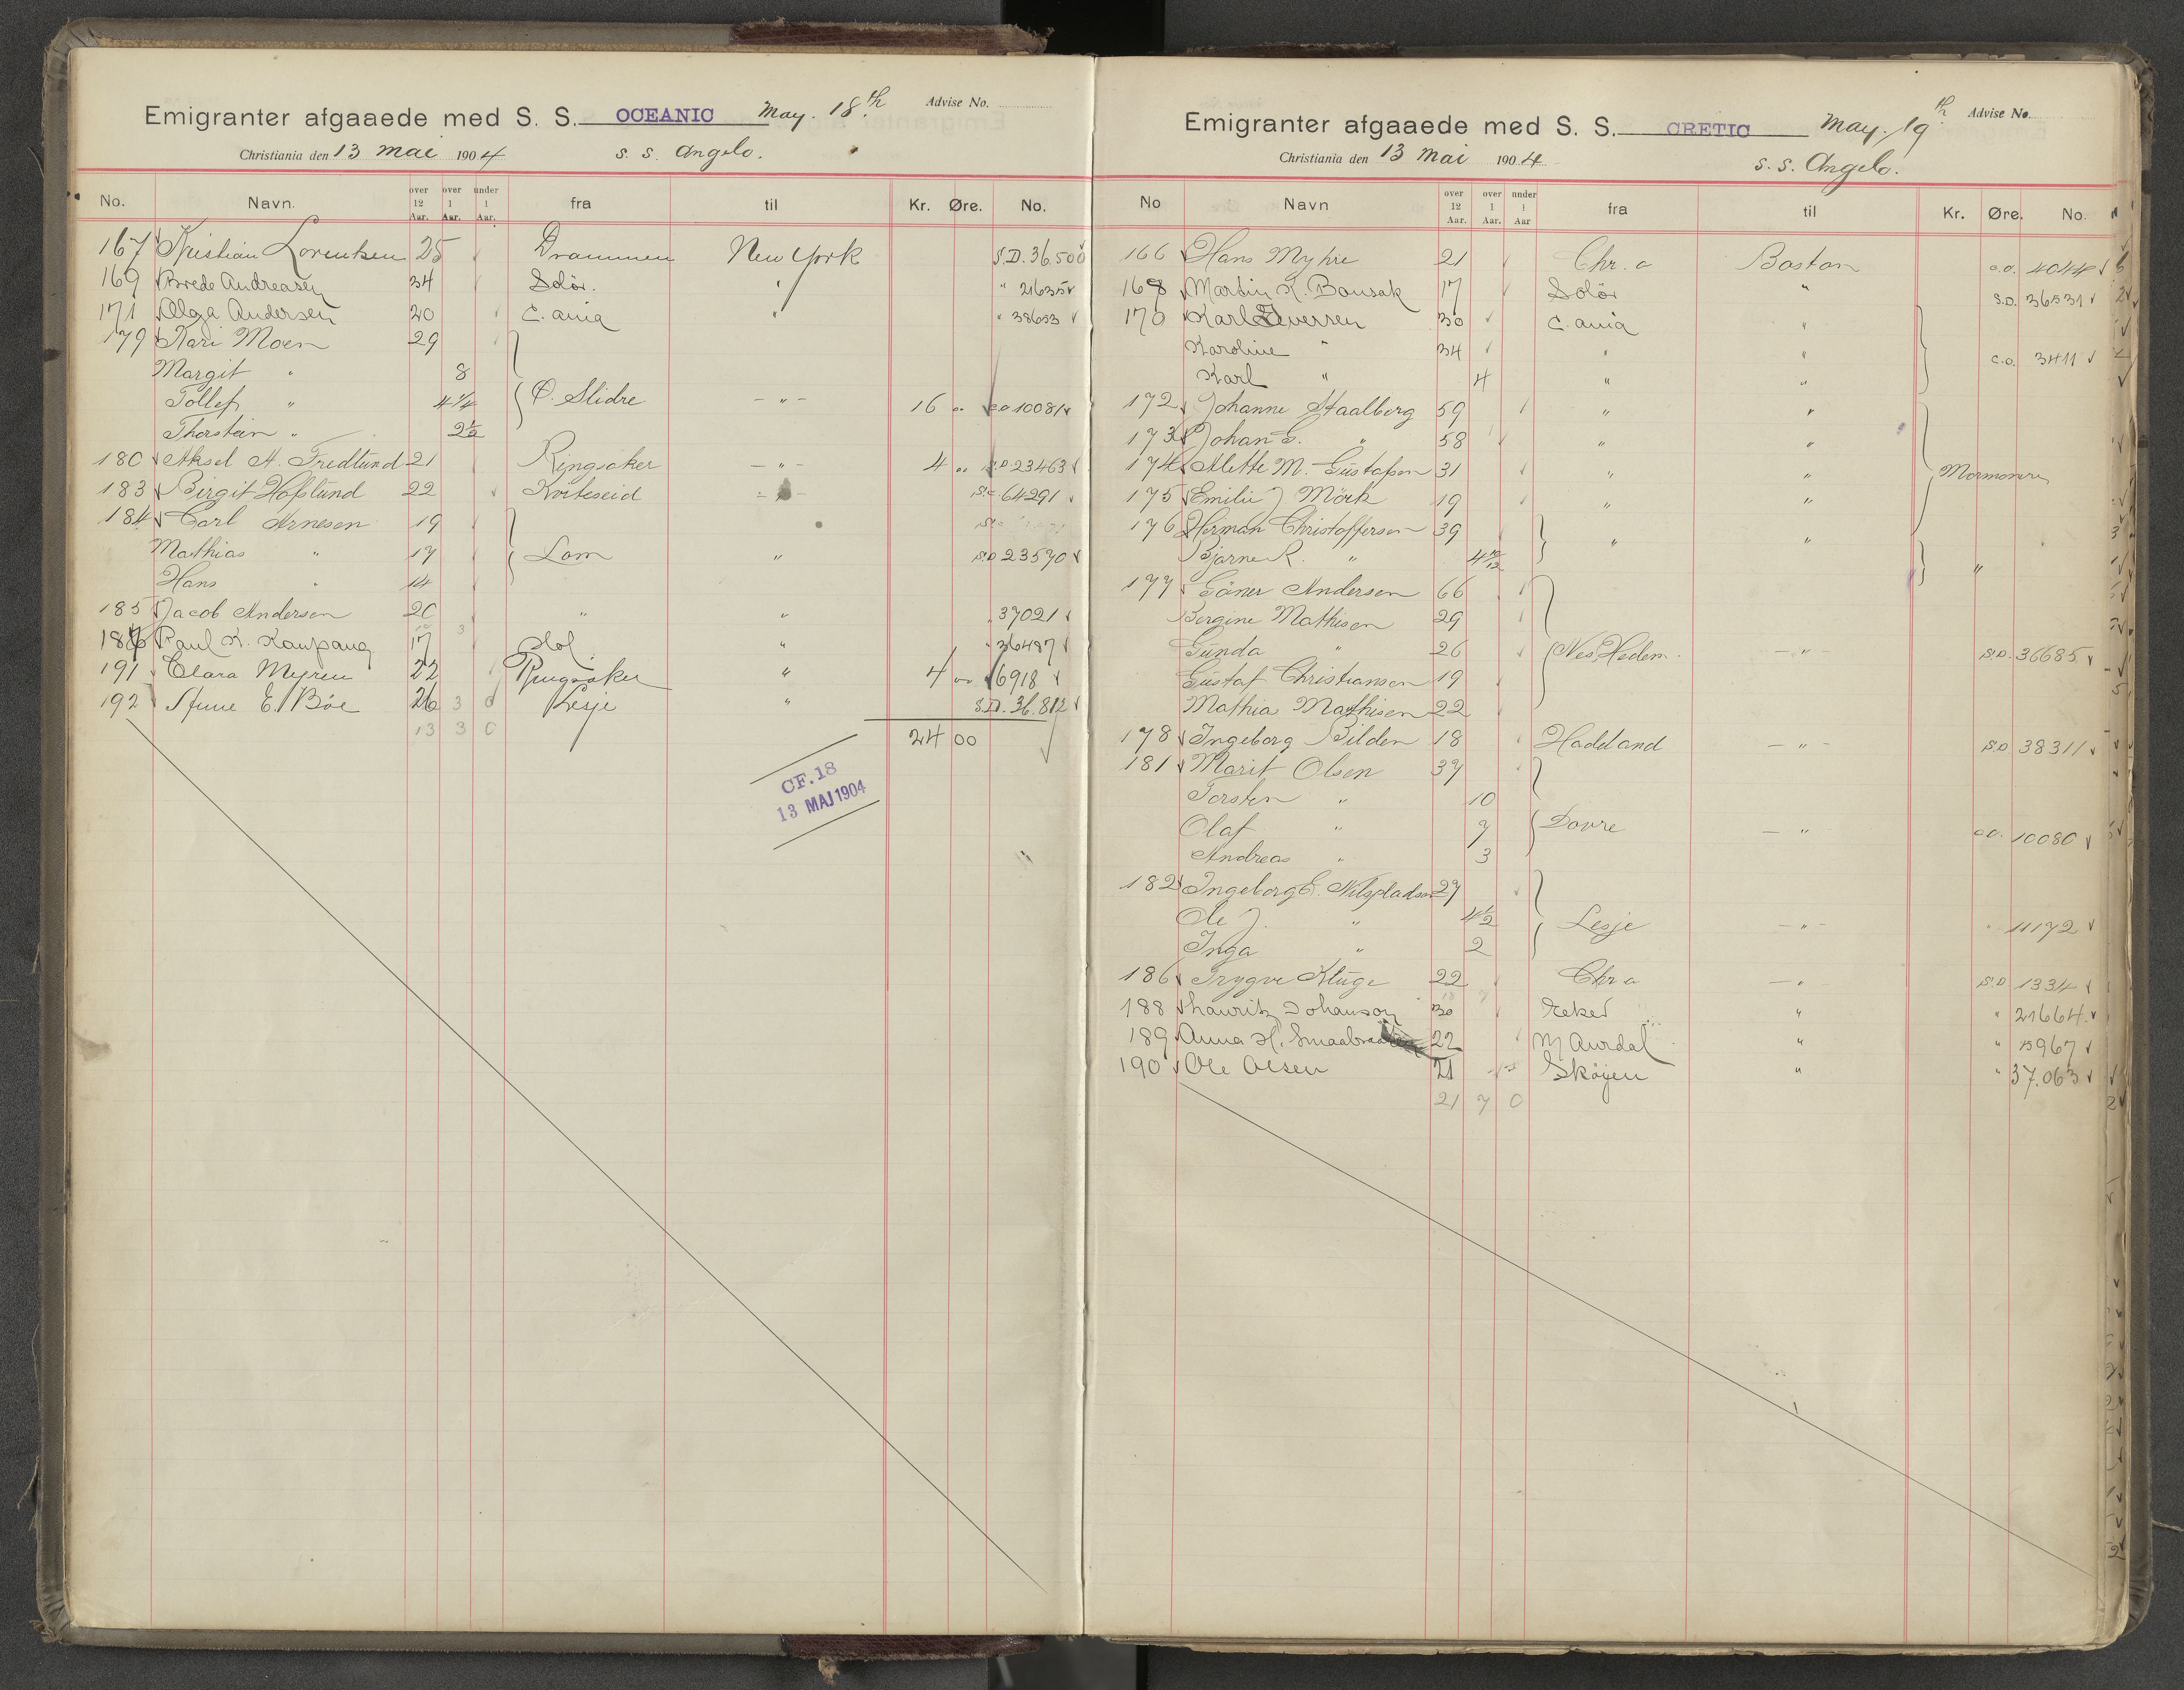 Emigranter afgaaede med S. S. OCEANIC May. 18th. Advise No.
Christiania den 13 mai 1904 S. S. Angelo.
No. Navn. over 12 Aar. over 1 Aar. under 1 Aar. fra til Kr. Øre. No.
167 Kristian Lorentsen 25 Drammen New York S.D. 36.500
169 Brede Andreasen 34 Solör. " " 21635
171 Olga Andersen 20 C. ania " " 38653
179 Kari Moen 29
Margit " 8
Tollef " 4 1/4 Ø. Slidre — " — 16 00 c.o 10081
Thorstein " 2 1/2
180 Aksel A. Fredlund 21 Ringsaker — " — 4 00 S.D. 23463
183 Birgit Hofslund 22 Kviteseid 64291
184 Carl Arnesen 19
Mathias " 17 Lom " S.D 23570
Hans " 14
185 Jacob Andersen 20 " " " 37021
187 Paul K. Kaupang 17 Hol. " " 36487
191 Clara Myren 22 Ringsaker " 4 00 6918
192 Anne E. Böe 26 3 0 Lesje " S.D. 36.812
13 3 0 24 00
CF.18
13 MAJ 1904
Emigranter afgaaede med S. S. CRETIC May. 19th Advise No.
Christiania den 13 mai 1904 S. S. Angelo.
No Navn over 12 Aar. over 1 Aar. under 1 Aar fra til Kr. Øre. No.
166 Hans Myhre 21 Chr. a Boston c.o. 4044
168 Martin K. Bousak 17 Solör " S.D. 36531
170 Karl Iversen 30 C. ania "
Karoline " 34 " " c.o. 3411
Karl " 4 " "
172 Johanne Staalberg 59 " "
173 Johan G. " 58 " "
174 Alette M. Gustafson 31 " " Mormonere
175 Emilie J Mörk 19 " "
176 Herman Christoffersen 39 " "
Bjarne R. " 4 10/12 "
177 Gäner Andersen 66
Bergine Mathisen 29
Gunda " 26 Nes, Hedem. — " — S.D. 36685
Gustaf Christiansen 19
Mathia Mathisen 22
178 Ingeborg Bilden 18 Hadeland — " — S.D 38311
181 Marit Olsen 37
Torsten " 10
Olaf " 7 Dovre — " c.o. 10080
Andreas " 3
182 Ingeborg E. Nilspladsen 27
Ole J. " 4 1/2 Lesje — " — " 11172
Inga " 2
186 Trygve Kluge 22 Chr a — " S.D 13314
188 Lauritz Johanson 30 Eker " " 21664
189 Anna H. 22 N Aurdal " " 15967
190 Ole Olsen 21 Sköyen " " 37.063
21 7 0